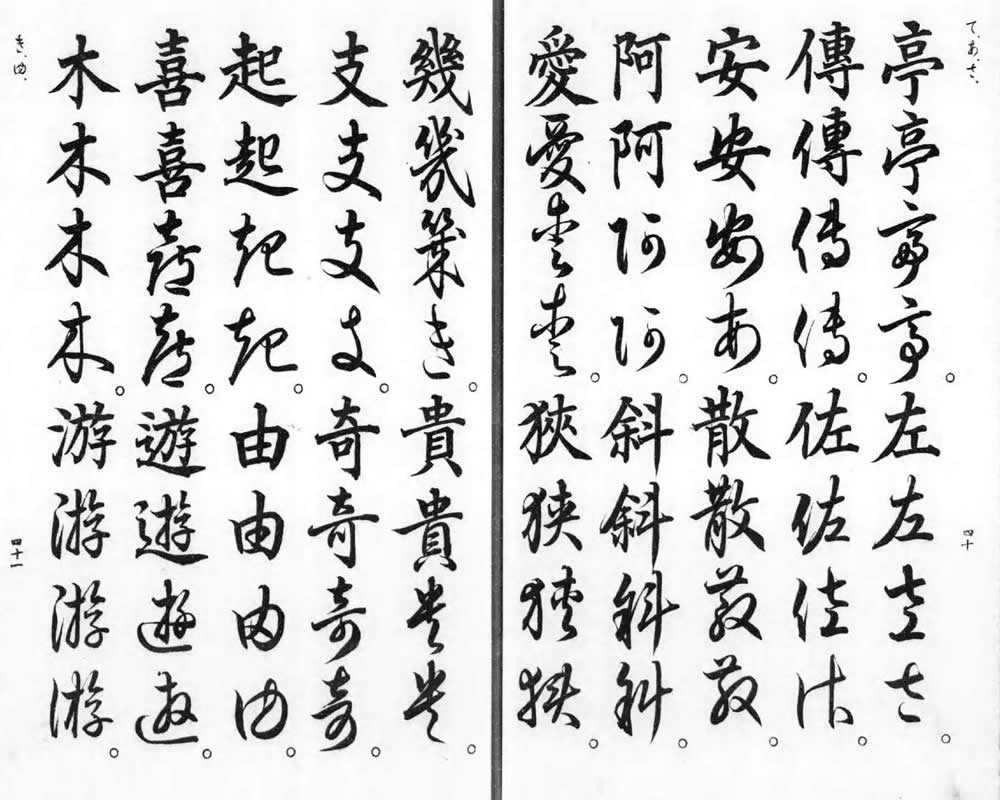 て、あ、さ、
亭亭亭亭。左左左左。
傳傳傳傳。佐佐佐佐。
安安安安。散散散散。
阿阿阿阿。斜斜斜斜。
愛愛愛愛。狹狹狹狹。
四十
幾幾幾幾。貴貴貴貴。
支支支支。奇奇奇奇。
起起起起。由由由由。
喜喜喜喜。遊遊遊遊。
木木木木。游游游游。
き、ゆ、
四十一